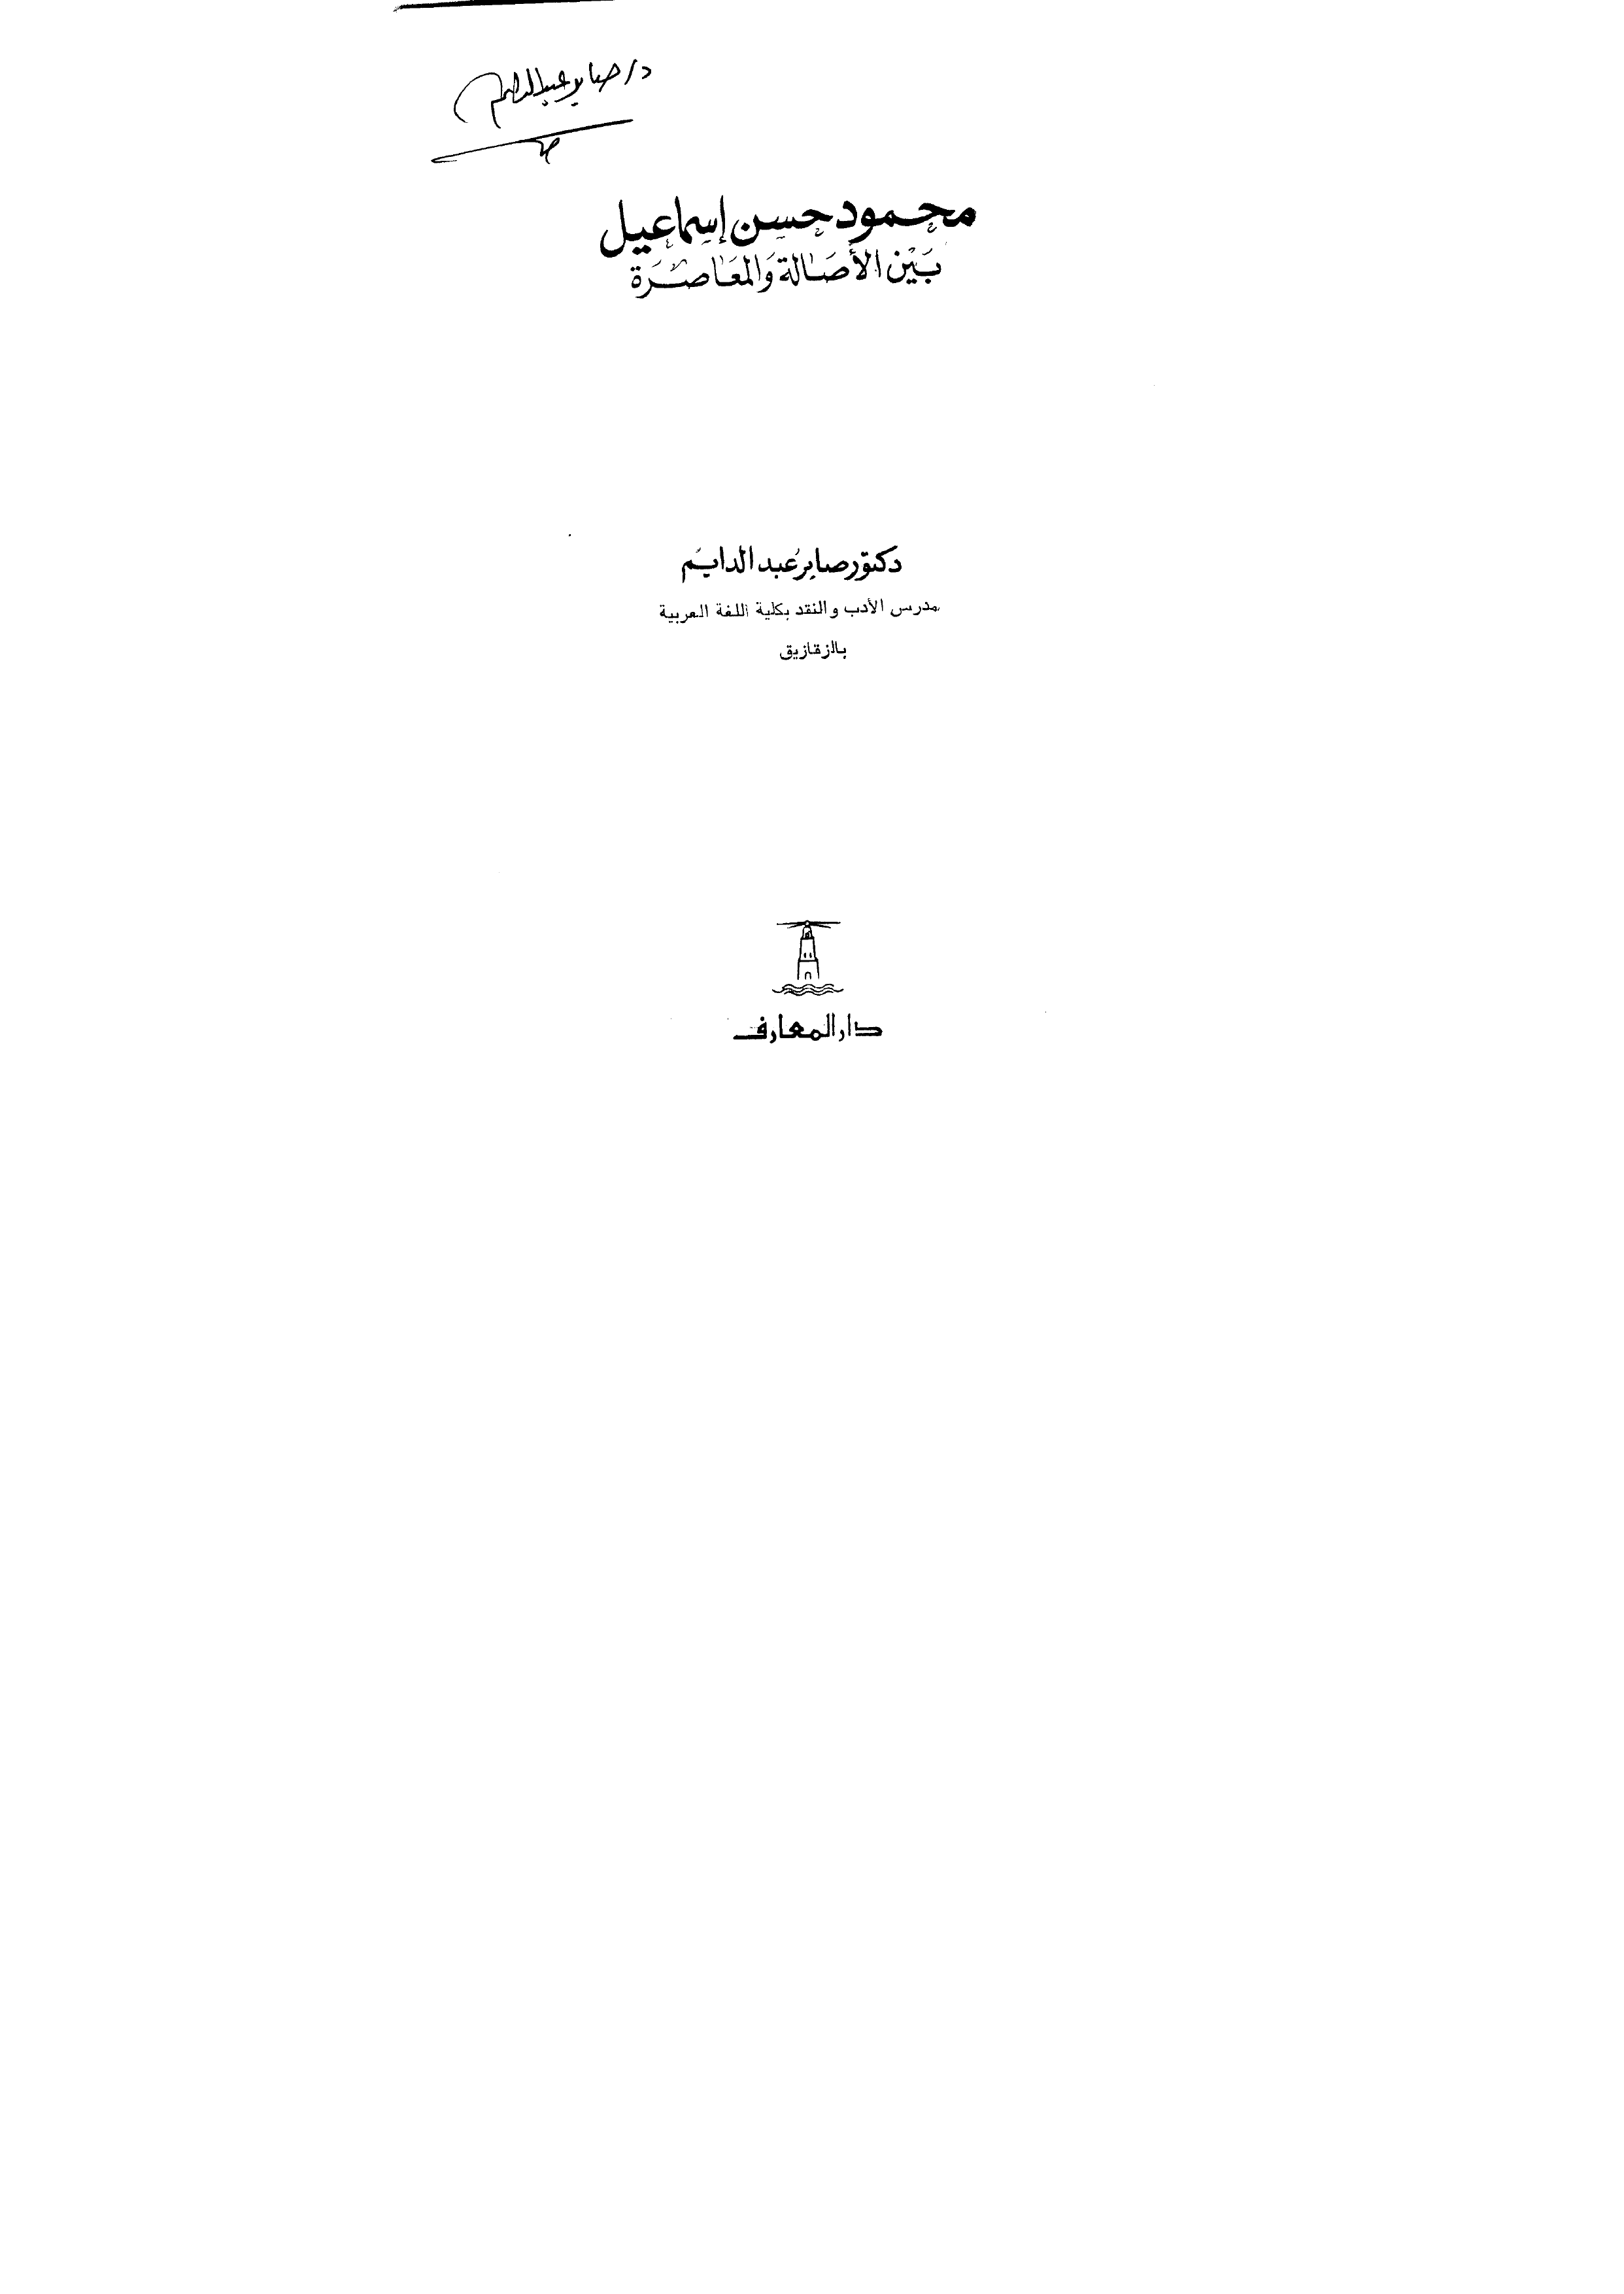 د/ صابر عبد الدايم
محمود حسن إسماعيل
بَيْن الأصَالة وَالمعَاصَرَة
دكتور صابر عبد الدايم
مدرس الأدب والنقد بكلية اللغة العربية
بالزقازيق
دار المعارف